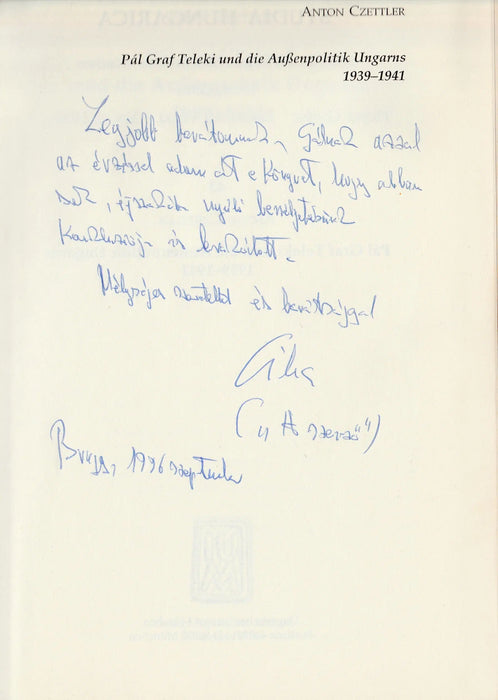 ANTON CZETTLER
Pál Graf Teleki und die Außenpolitik Ungarns
1939–1941
Legjobb barátomnak, Gálnak azzal
az érzéssel adom át e könyvet, hogy abban
sok, éjszakába nyúló beszélgetésünk
konkluziója is lecsapódott.
Mélységes szeretettel és barátsággal
("A szerző")
1996 szeptember